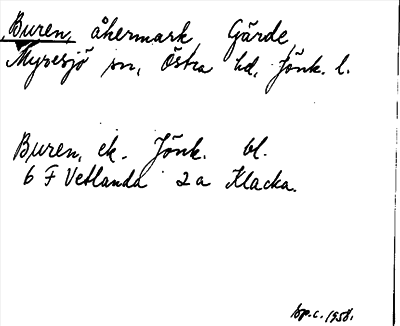 Buren, åkermark Gärde,
Myresjö sn, Östra hd, Jönk. l.
Buren, ek. Jönk. bl.
6 F Vetlanda 2 a Klacka.
sp.c. 1958.